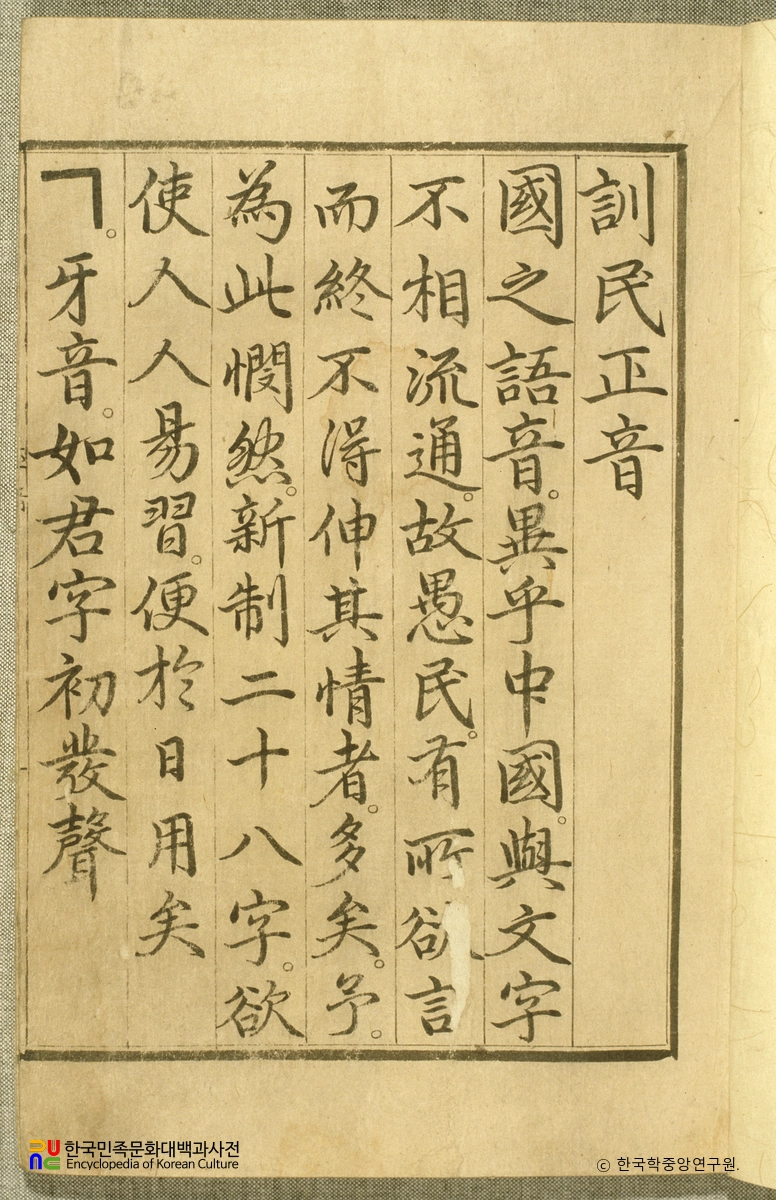 訓民正音
國之語音。異乎中國。與文字
不相流通。故愚民。有所欲言
而終不得伸其情者。多矣。予。
為此憫然。新制二十八字。欲
使人人易習。便於日用矣
ㄱ。牙音。如君字初發聲
한국민족문화대백과사전
Encyclopedia of Korean Culture
ⓒ 한국학중앙연구원.